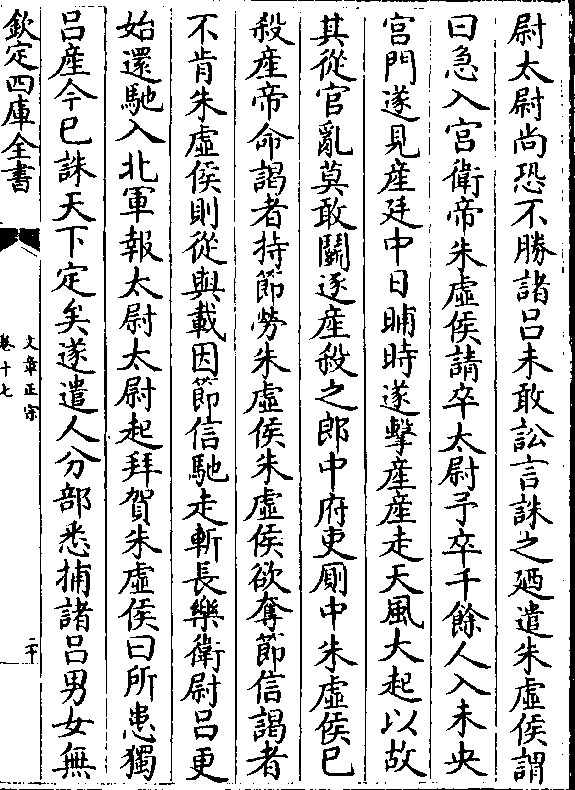 尉太尉尚恐不勝諸吕未敢訟言誅之廼遣朱虚侯謂
曰急入宫衛帝朱虚侯請卒太尉予卒千餘人入未央
宫門遂見産廷中日晡時遂擊産産走天風大起以故
其從官亂莫敢鬬逐産殺之郎中府吏厠中朱虚侯已
殺産帝命謁者持節勞朱虚侯朱虚侯欲奪節信謁者
不肯朱虚侯則從與載因節信馳走斬長樂衛尉吕更
始還馳入北軍報太尉太尉起拜賀朱虚侯曰所患獨
吕産今已誅天下定矣遂遣人分部悉捕諸吕男女無
欽定四庫全書
文章正宗
卷十七
二十